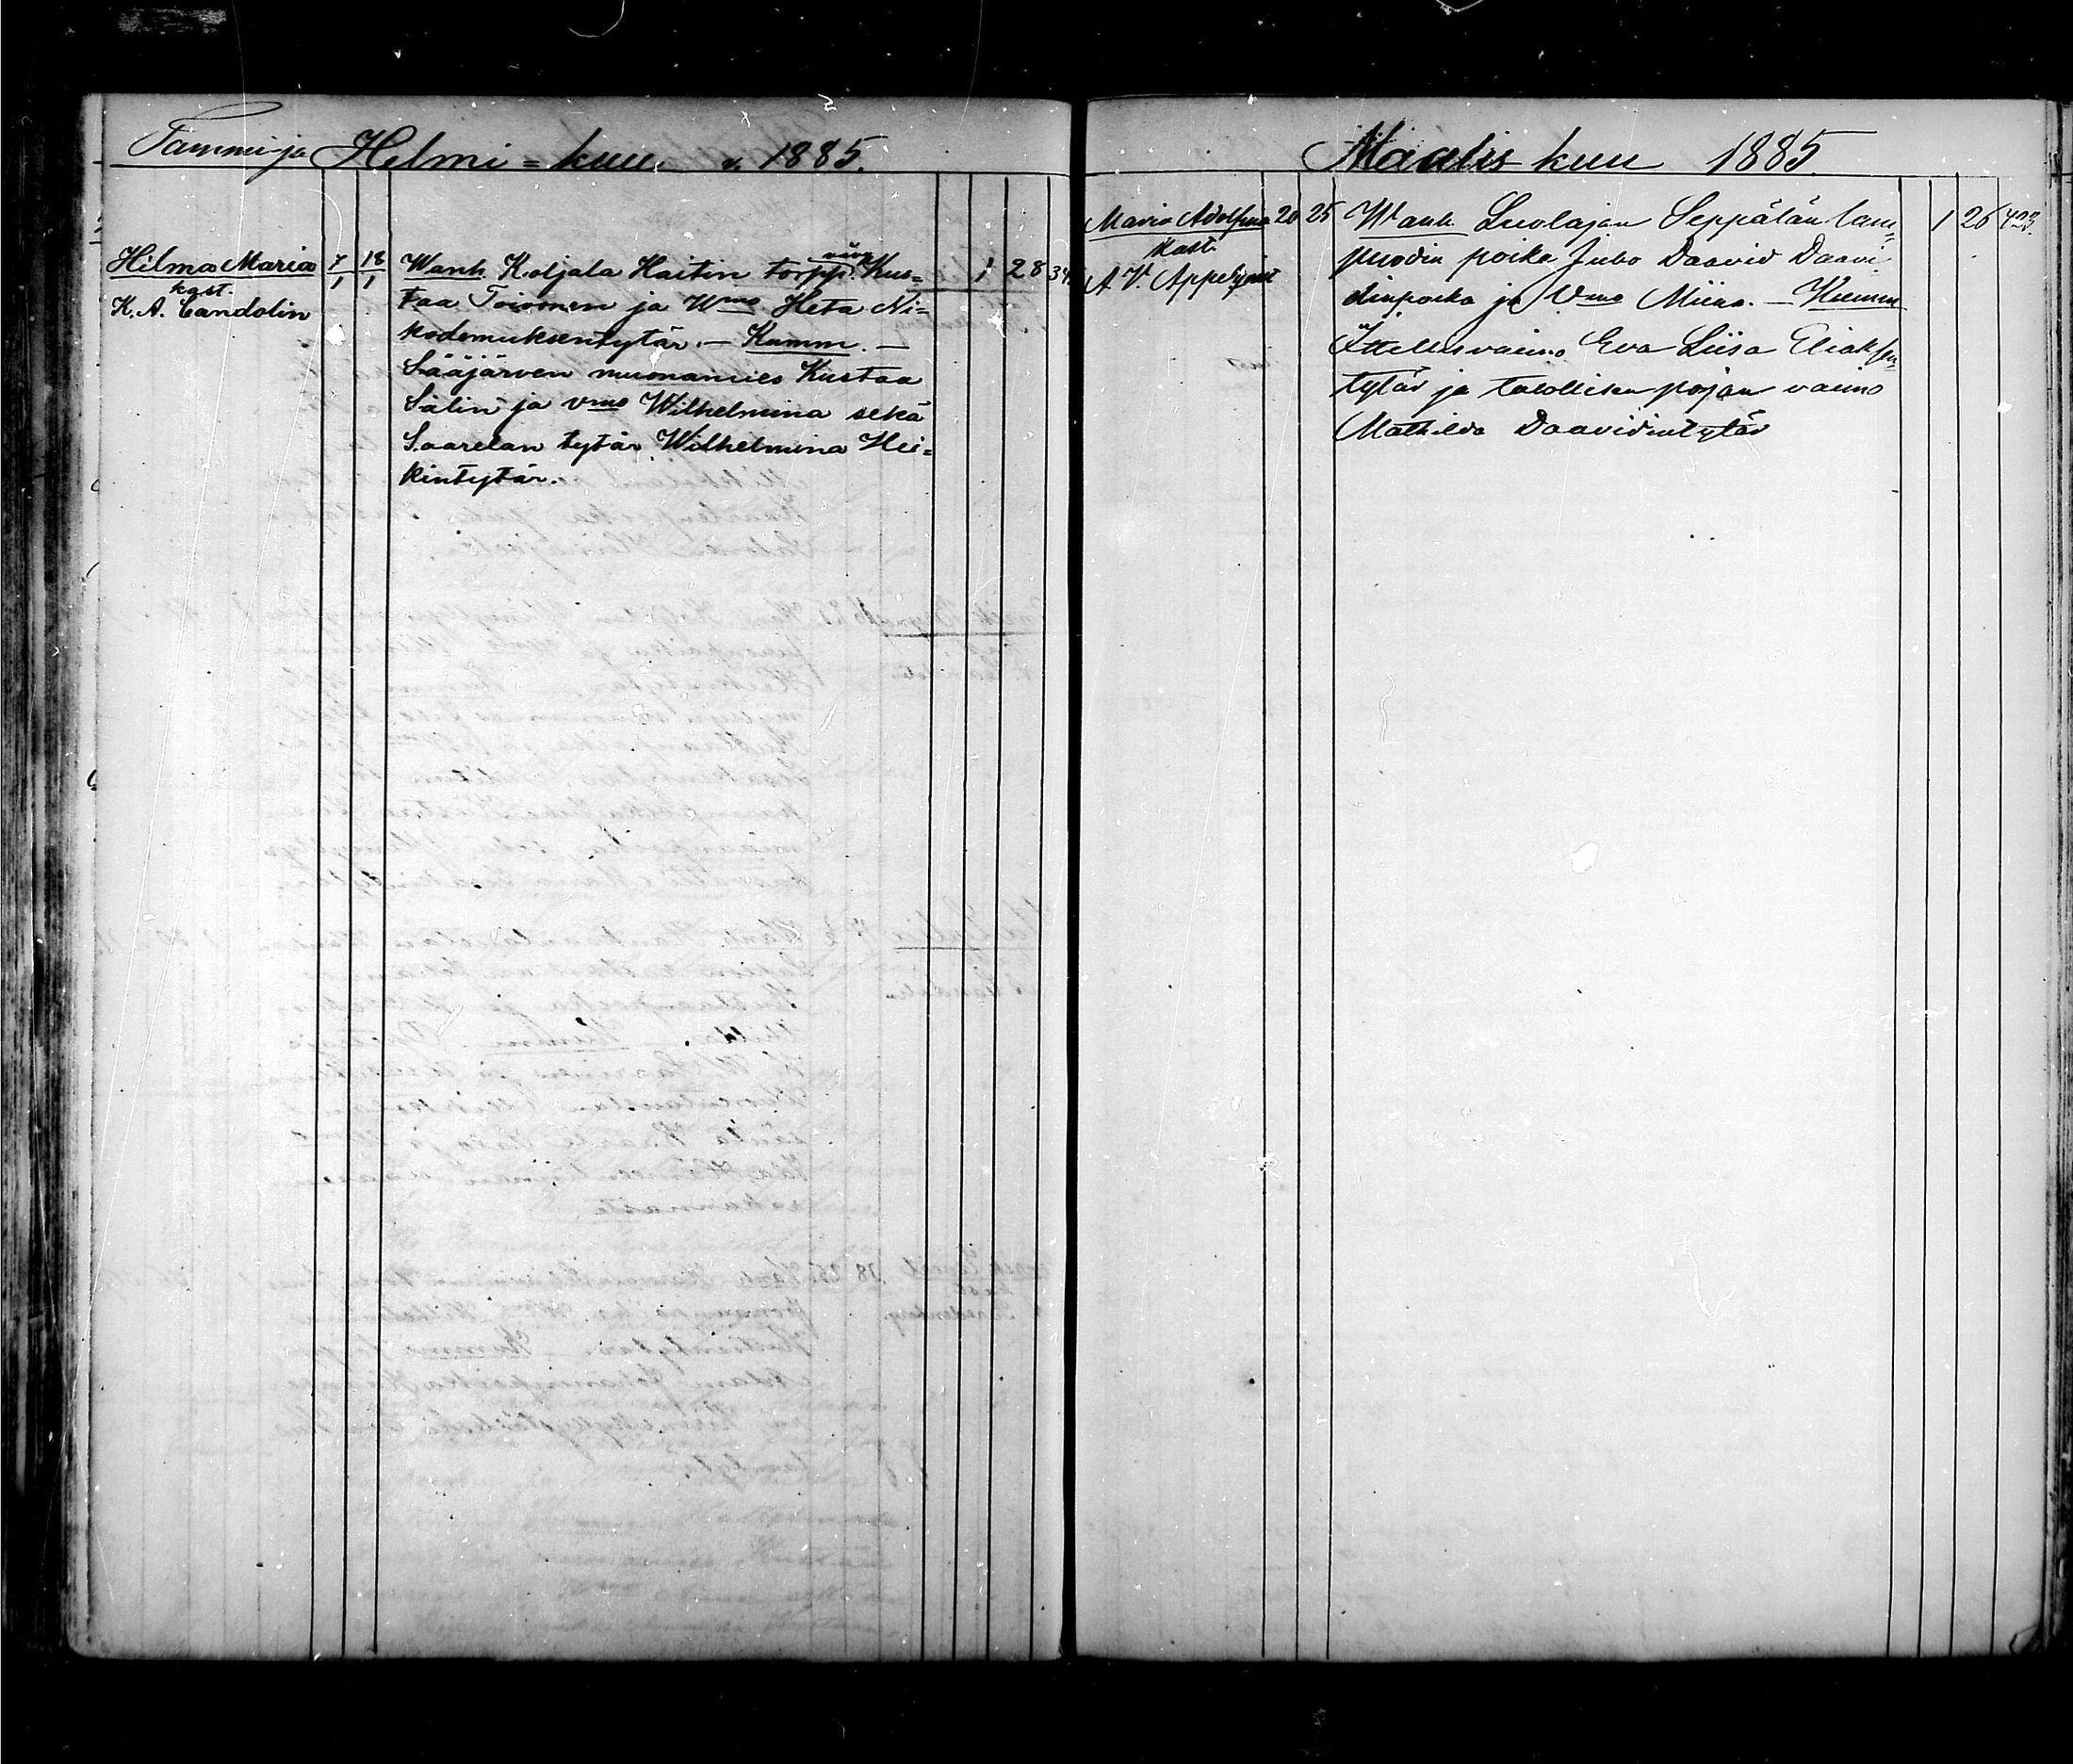 Tammi ja Helmi=kuu. v. 1885.
Hilma Maria 7/1 18/1
kast.
K. A. Candolin
Wanh. Koljala Haitin torpp. Kus=
taa Toivonen ja Wmo Heta Ni=
kodemuksentytär. — Kumm. —
Sääjärven muonamies Kustaa
Sälin ja vmo Wilhelmina sekä
Saarelan tytär Wilhelmina Hei=
kintytär.
1 28 34
Maalis kuu 1885.
Maria Adolfina 20 25
kast.
A. V. Appelqvist
Wanh. Luolajan Seppälän lam=
puodin poika Juho Daavid Daavi
dinpoika ja Vmo Miina. — Kumm
Ittellisvaimo Eva Liisa Eliaksen
tytär ja talollisen pojan vaimo
Mathilda Daavidintytär
1 26 423.